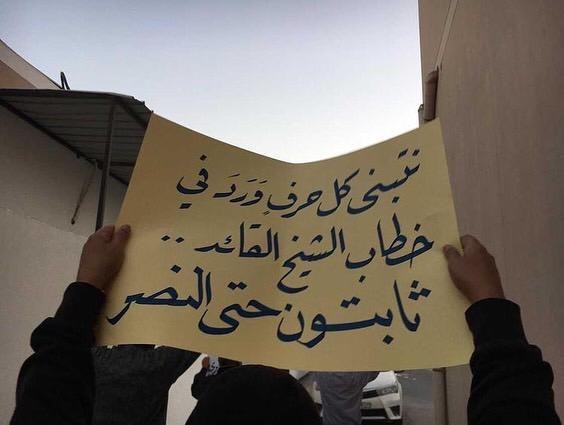 نتبنى كل حرفٍ وَرَدَ في
خطاب الشيخ القائد ..
ثابتون حتى النصر